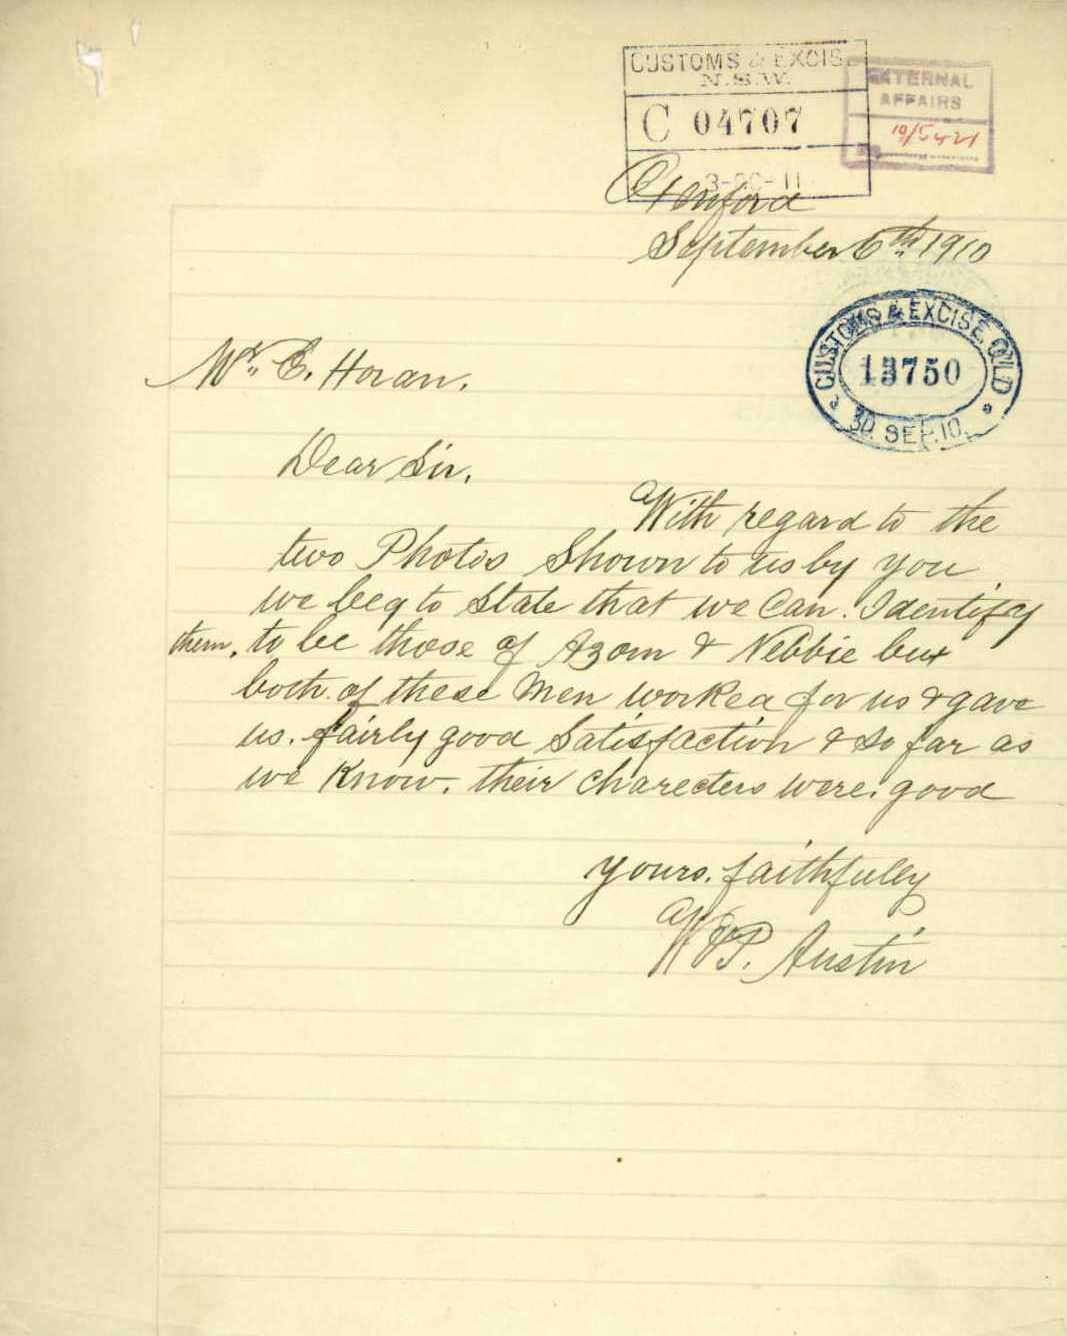 CUSTOMS & EXCISE
N.S.W.
C 04707
EXTERNAL
AFFAIRS
September 6th 1910
CUSTOMS & EXCISE Q'LD
13750
30. SEP. 10.
Mr. E. Horan.
Dear Sir.
With regard to the
two Photos Shown to us by you
we beg to State that we Can. Identify
them. to be those of Azom & Nebbie but
both of these Men worked for us & gave
us. fairly good Satisfaction & so far as
we Know. their charecters were. good
yours. faithfuley
W & P. Austin